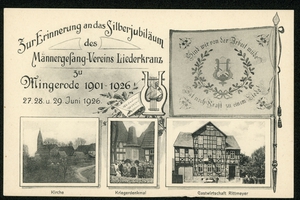 Zur Erinnerung an das Silberjubiläum
des
Männergesang-Vereins Liederkranz
zu
Mingerode 1901-1926
27. 28. u. 29. Juni 1926.
Sind wir von der Arbeit müde
Kirche
Kriegerdenkmal
Gastwirtschaft Rittmeyer